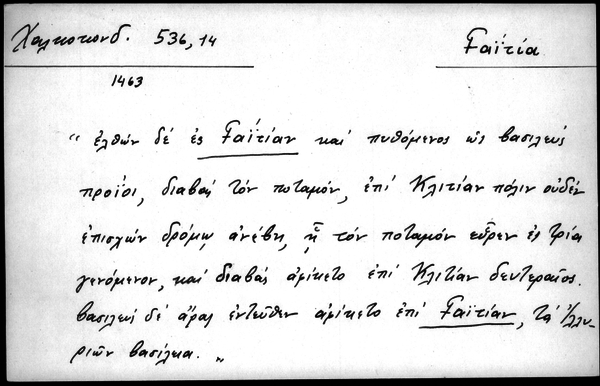 Χαλκοκονδ. 536,14
Γαϊτία
1463
“ ἐλθών δέ ἐς Γαϊτίαν καί πυθόμενος ὡς βασιλεύς
προΐοι, διαβάς τόν ποταμόν, ἐπί Κλιτίαν πόλιν οὐδέν
ἐπισχών δρόμῳ ἀνέβη, ᾗ τόν ποταμόν εὗρεν ἐς τρία
γενόμενον, καί διαβάς ἀφίκετο ἐπί Κλιτίαν δευτεραῖος.
βασιλεύς δέ ἄρας ἐντεῦθεν ἀφίκετο ἐπί Γαϊτίαν, τά Ἰλλυ-
ριῶν βασίλεια. „